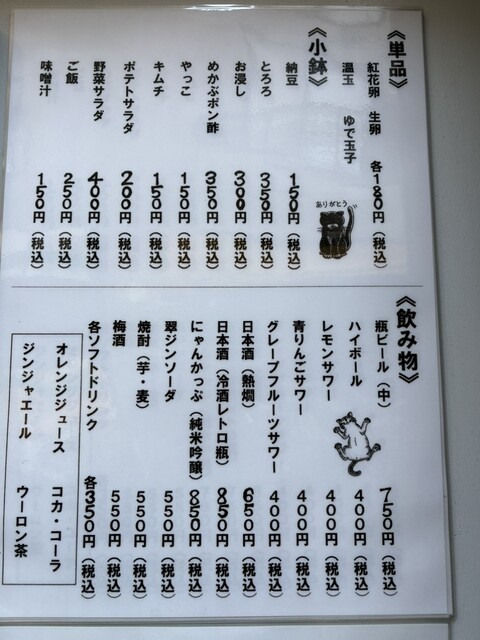 《単品》
紅花卵　生卵　各180円（税込）
温玉　ゆで玉子
ありがとう
《小鉢》
納豆　150円（税込）
とろろ　350円（税込）
お浸し　300円（税込）
めかぶポン酢　350円（税込）
やっこ　150円（税込）
キムチ　150円（税込）
ポテトサラダ　200円（税込）
野菜サラダ　400円（税込）
ご飯　250円（税込）
味噌汁　150円（税込）
《飲み物》
瓶ビール（中）　750円（税込）
ハイボール　400円（税込）
レモンサワー　400円（税込）
青りんごサワー　400円（税込）
グレープフルーツサワー　400円（税込）
日本酒（熱燗）　650円（税込）
日本酒（冷酒レトロ瓶）　850円（税込）
にゃんかっぷ（純米吟醸）　850円（税込）
翠ジンソーダ　550円（税込）
焼酎（芋・麦）　550円（税込）
梅酒　550円（税込）
各ソフトドリンク　各350円（税込）
オレンジジュース　コカ・コーラ
ジンジャエール　ウーロン茶